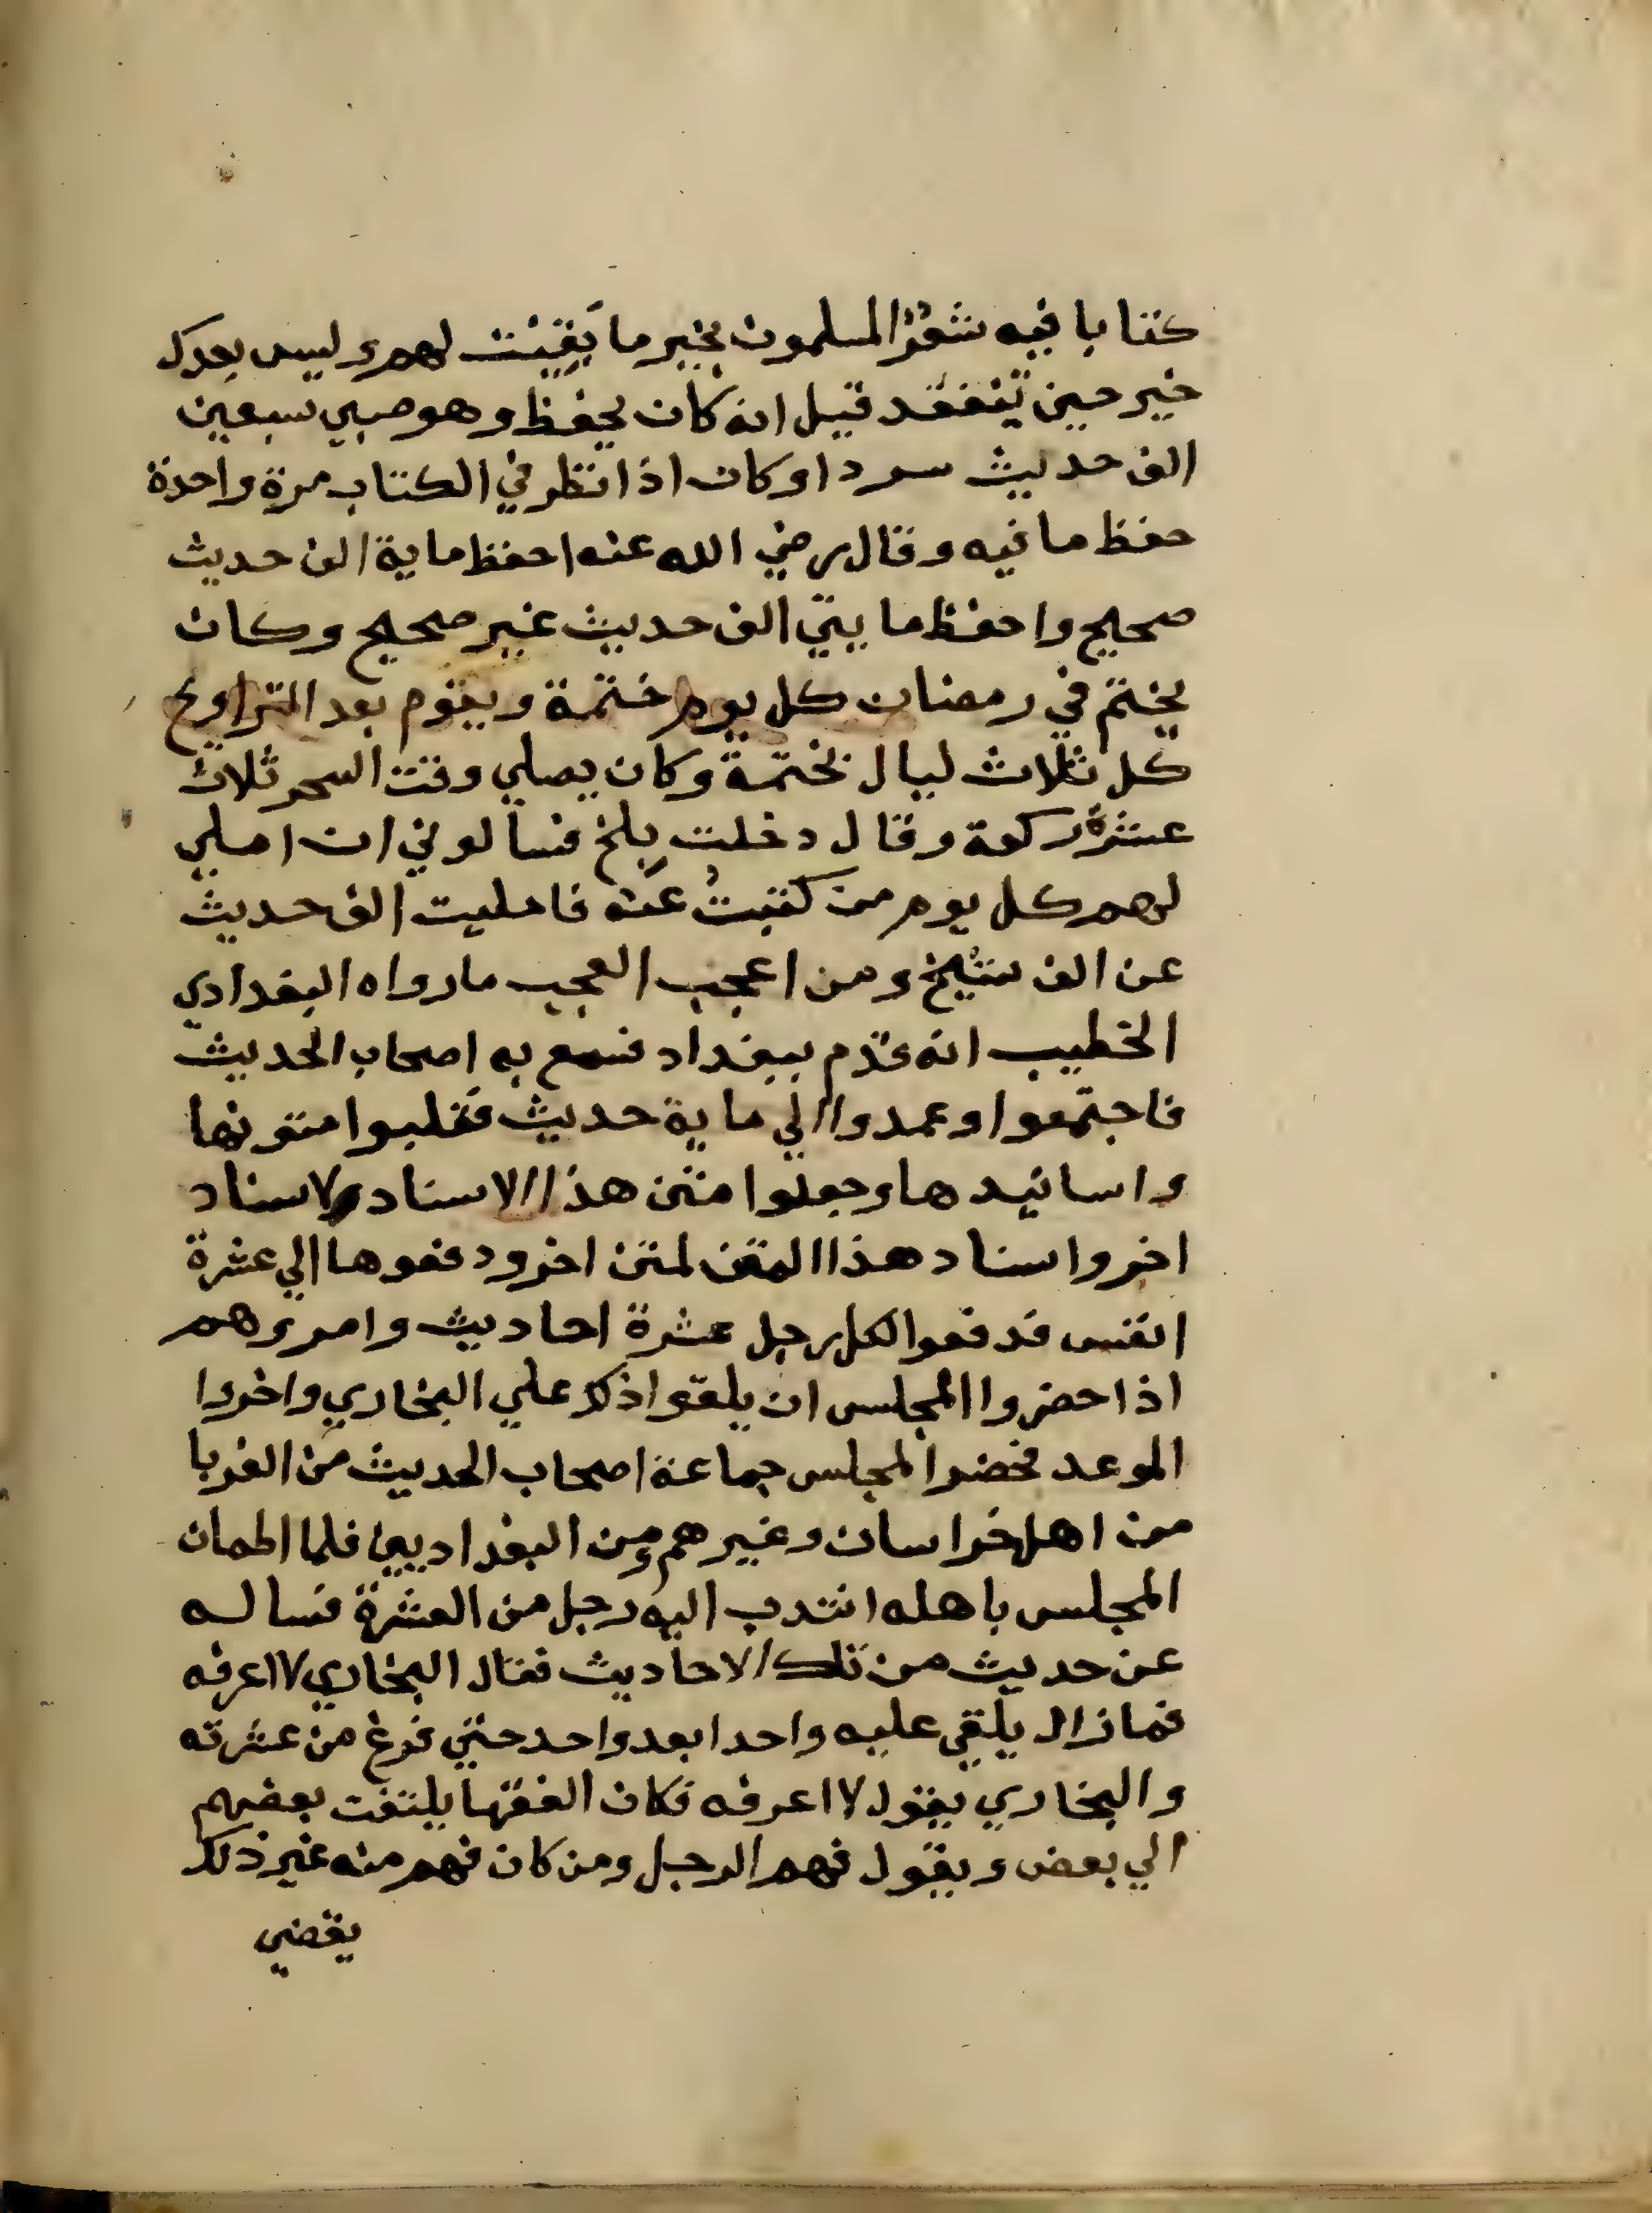 كتابا فيه شعر المسلمون بخير ما بقيت لهم وليس بعدك
خير حين تفتقد قيل انه كان يحفظ وهو صبي سبعين
الف حديث سردا وكان اذا نظر في الكتاب مرة واحدة
حفظ ما فيه وقال رضي الله عنه احفظ ماية الف حديث
صحيح واحفظ مايتي الف حديث غير صحيح وكان
يختم في رمضان كل يوم ختمة ويقوم بعد التراويح
كل ثلاث ليال بختمة وكان يصلي وقت السحر ثلاث
عشرة ركعة وقال دخلت بلخ فسالوني ان املي
لهم كل يوم من كتبت عنه فامليت الف حديث
عن الف شيخ ومن اعجب العجب ما رواه البغدادي
الخطيب انه قدم ببغداد فسمع به اصحاب الحديث
فاجتمعوا وعمدوا الي ماية حديث فقلبوا متونها
واسانيدها وجعلوا متن هذا الاسناد لاسناد
اخر واسناد هذا المتن لمتن اخر ودفعوها الي عشرة
انفس فدفعوا لكل رجل عشرة احاديث وامروهم
اذا حضروا المجلس ان يلقوا ذلك علي البخاري واخذوا
الموعد فحضر المجلس جماعة اصحاب الحديث من الغربا
من اهل خراسان وغيرهم ومن البغداديين فلما اطمان
المجلس باهله انتدب اليه رجل من العشرة فساله
عن حديث من تلك الاحاديث فقال البخاري لا اعرفه
فما زال يلقي عليه واحدا بعد واحد حتي فرغ من عشرته
والبخاري يقول لا اعرفه فكان الفقها يلتفت بعضهم
الي بعض ويقول فهم الرجل ومن كان فهم منه غير ذلك
يقضي